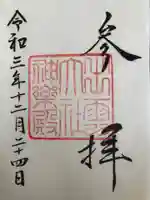 参拝
出雲
大社
神楽殿
令和三年十二月二十四日